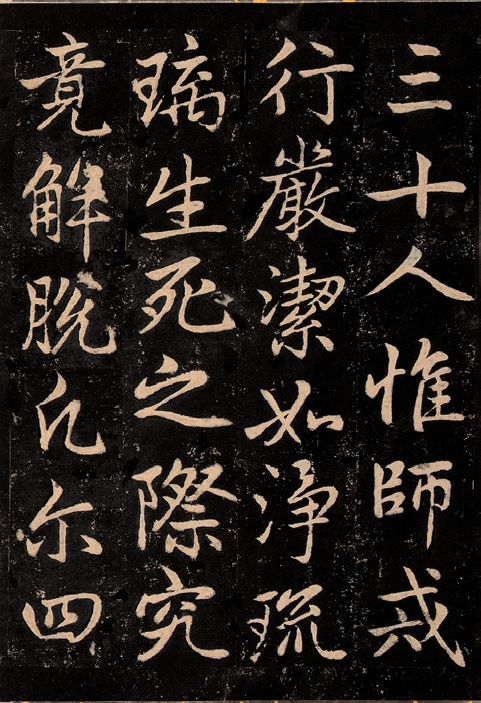 三十人惟師戒
行嚴潔如淨琉
璃生死之際究
竟解脫凡尒四